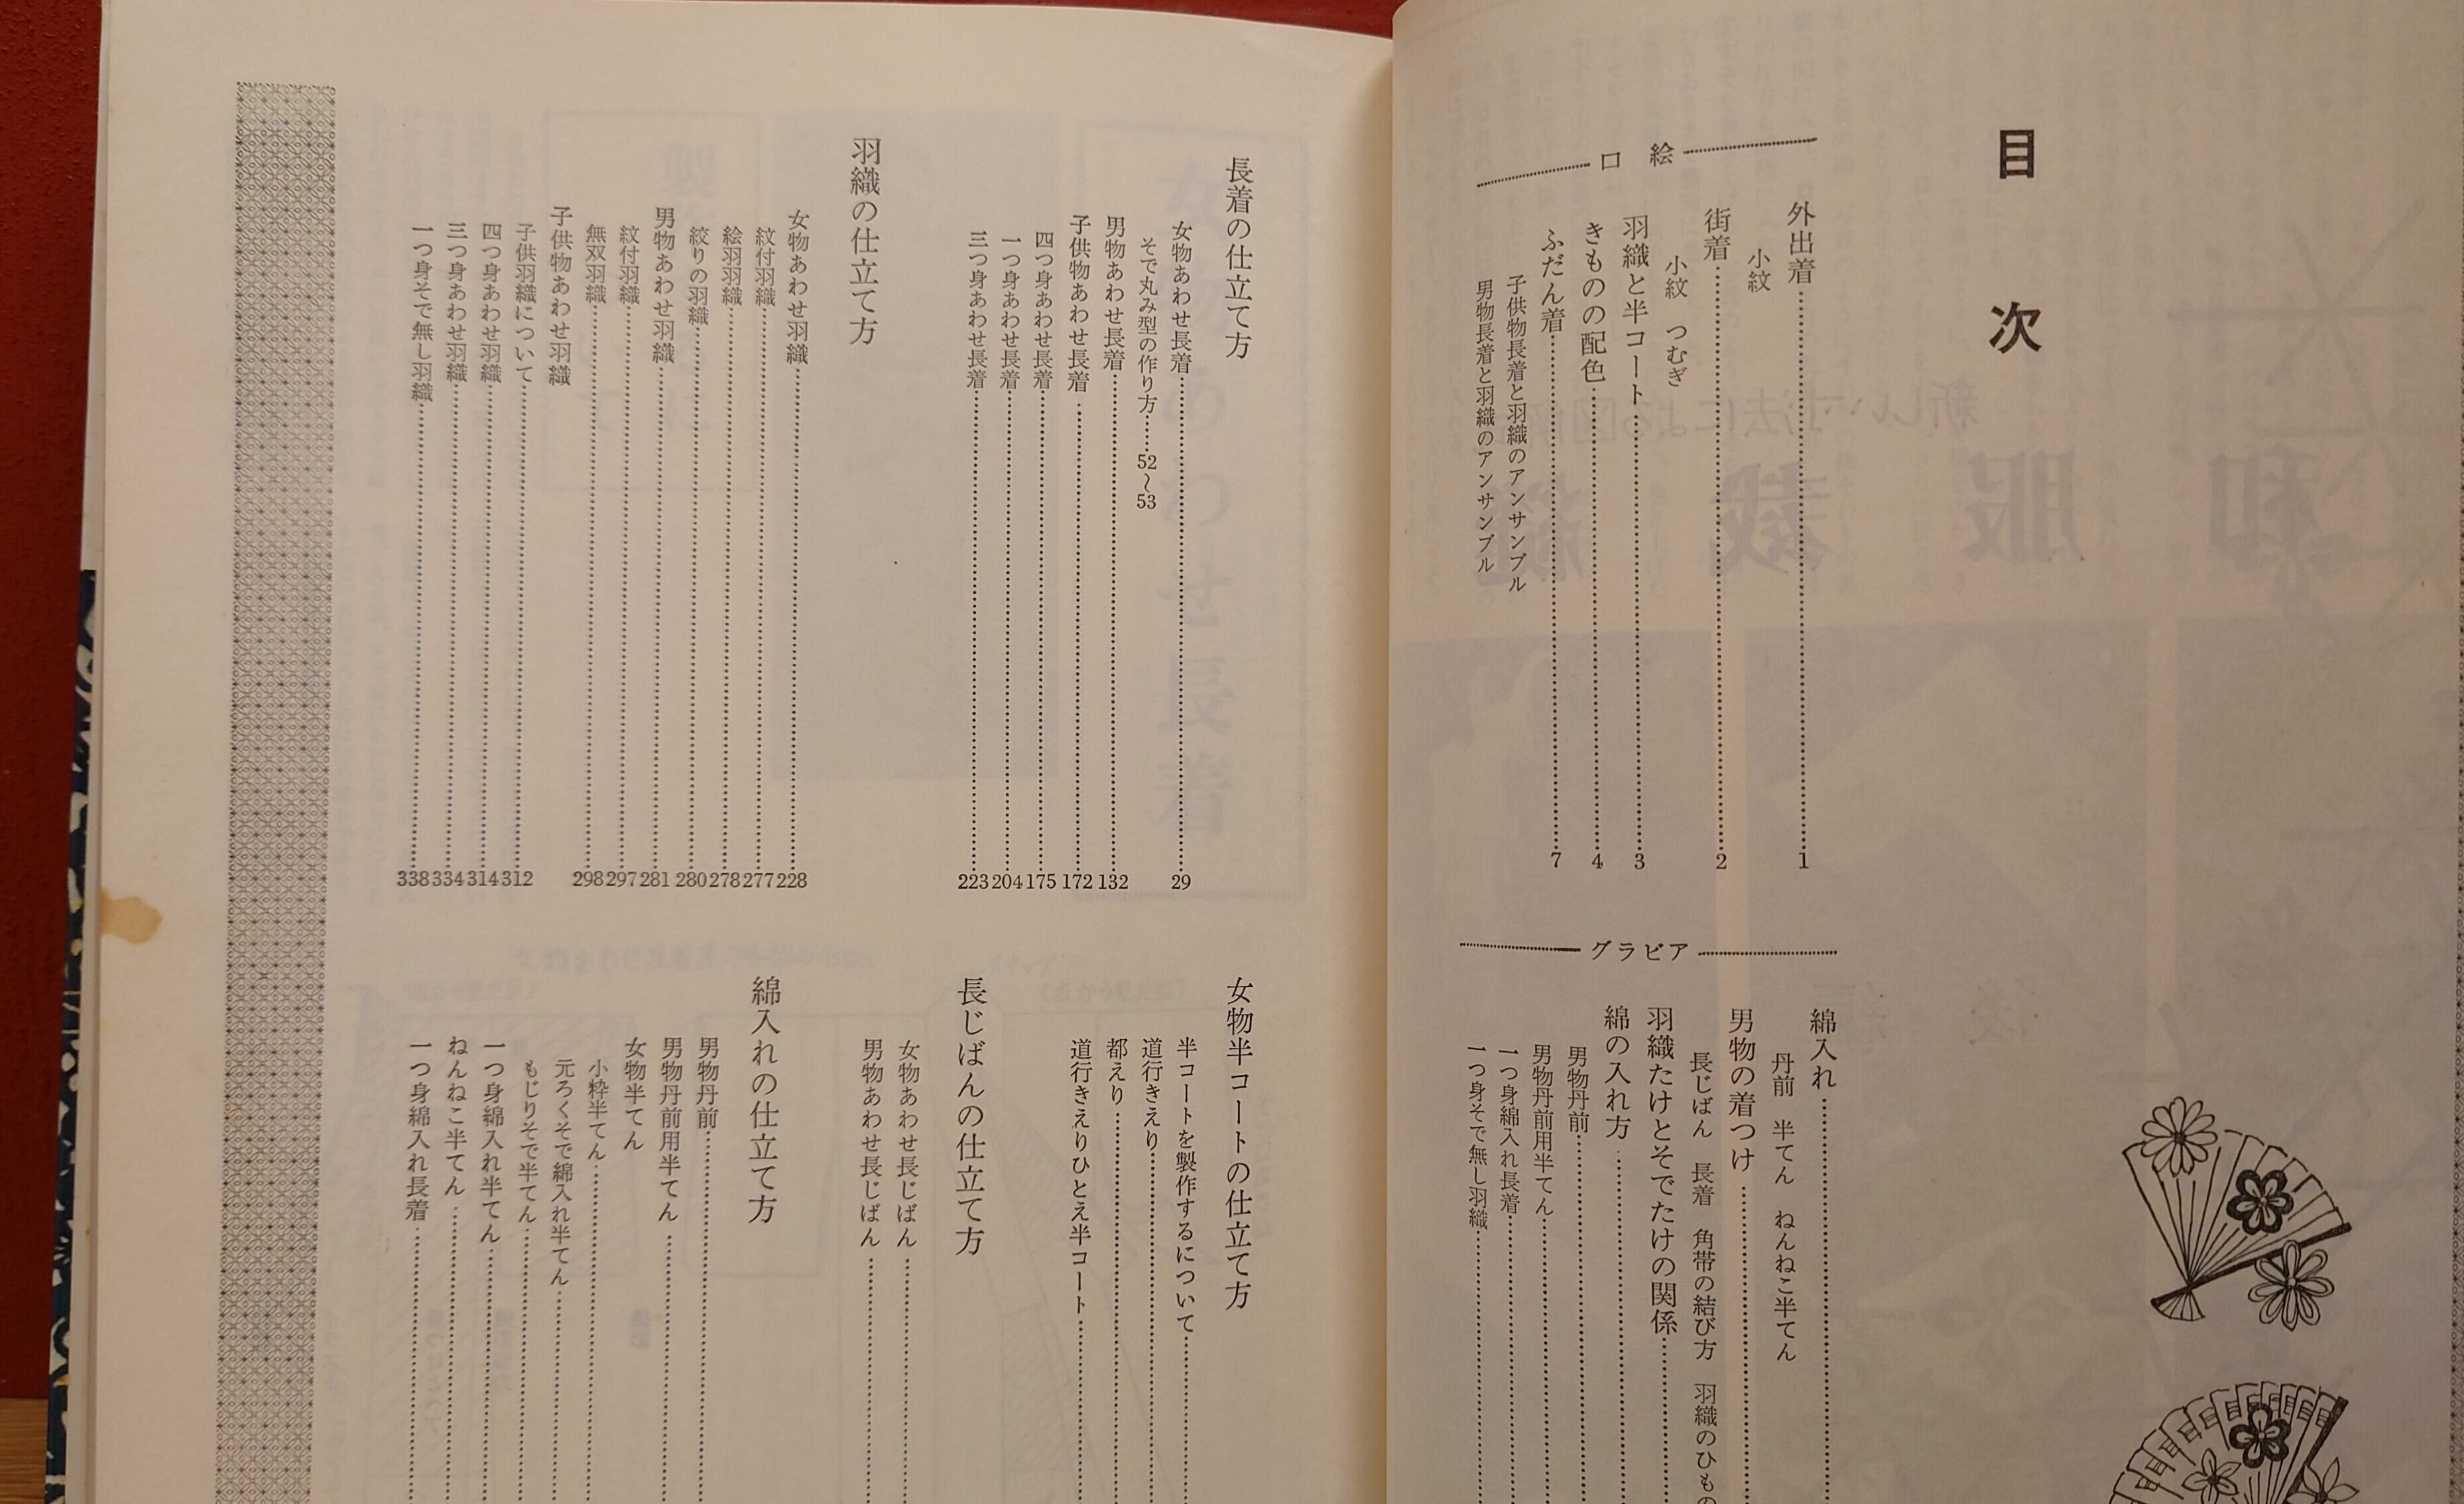 目次
口絵
外出着……1
小紋
街着……2
小紋 つむぎ
羽織と半コート……3
きものの配色……4
ふだん着……7
子供物長着と羽織のアンサンブル
男物長着と羽織のアンサンブル
グラビア
綿入れ……
丹前 半てん ねんねこ半てん
男物の着つけ……
長じばん 長着 角帯の結び方 羽織のひもの
羽織たけとそでたけの関係……
綿の入れ方……
男物丹前……
男物丹前用半てん……
一つ身綿入れ長着……
一つ身そで無し羽織……
長着の仕立て方
女物あわせ長着……29
そで丸み型の作り方……52〜53
男物あわせ長着……132
子供物あわせ長着……172
四つ身あわせ長着……175
一つ身あわせ長着……204
三つ身あわせ長着……223
羽織の仕立て方
女物あわせ羽織……228
紋付羽織……277
絵羽羽織……278
絞りの羽織……280
男物あわせ羽織……281
紋付羽織……297
無双羽織……298
子供物あわせ羽織
子供羽織について……312
四つ身あわせ羽織……314
三つ身あわせ羽織……334
一つ身そで無し羽織……338
女物半コートの仕立て方
半コートを製作するについて……
道行きえり……
都えり……
道行きえりひとえ半コート……
長じばんの仕立て方
女物あわせ長じばん……
男物あわせ長じばん……
綿入れの仕立て方
男物丹前……
男物丹前用半てん……
女物半てん
小粋半てん……
元ろくそで綿入れ半てん……
もじりそで半てん……
一つ身綿入れ半てん……
ねんねこ半てん……
一つ身綿入れ長着……